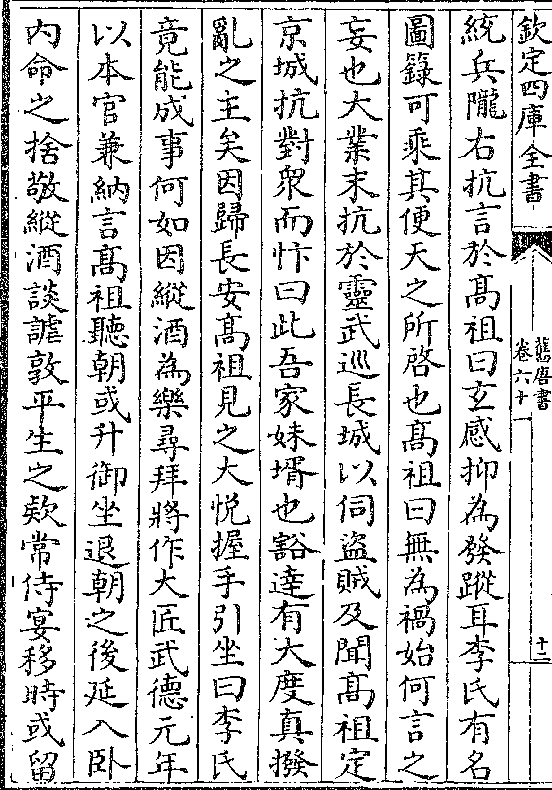 欽定四庫全書
舊唐書
卷六十
十二
統兵隴右抗言於髙祖曰玄感抑為發蹤耳李氏有名
圖籙可乘其便天之所啓也髙祖曰無為禍始何言之
妄也大業末抗於靈武巡長城以伺盜賊及聞髙祖定
京城抗對衆而忭曰此吾家妹壻也豁達有大度真撥
亂之主矣因歸長安髙祖見之大悅握手引坐曰李氏
竟能成事何如因縱酒為樂尋拜將作大匠武德元年
以本官兼納言髙祖聽朝或升御坐退朝之後延入卧
内命之捨敬縱酒談謔敦平生之欵常侍宴移時或留